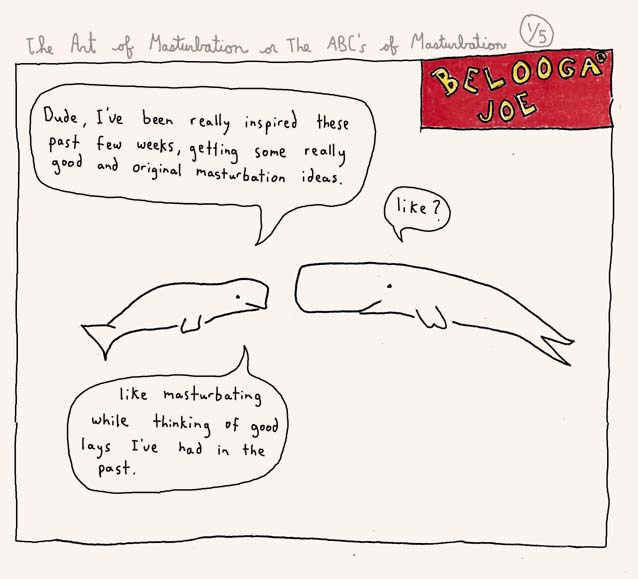 The Art of Masturbation or The ABC's of Masturbation 1/5
BELOOGA
JOE
Dude, I've been really inspired these
past few weeks, getting some really
good and original masturbation ideas.
like?
like masturbating
while thinking of good
lays I've had in the
past.